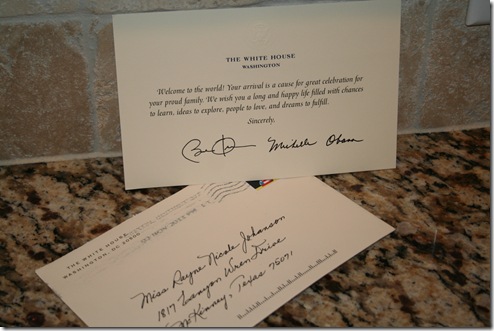 THE WHITE HOUSE
WASHINGTON
Welcome to the world! Your arrival is a cause for great celebration for
your proud family. We wish you a long and happy life filled with chances
to learn, ideas to explore, people to love, and dreams to fulfill.
Sincerely,
Michelle Obama
THE WHITE HOUSE
WASHINGTON, DC 20500
Miss Rayne Nicole Johanson
1817 Canyon Wren Drive
McKinney, Texas 75071